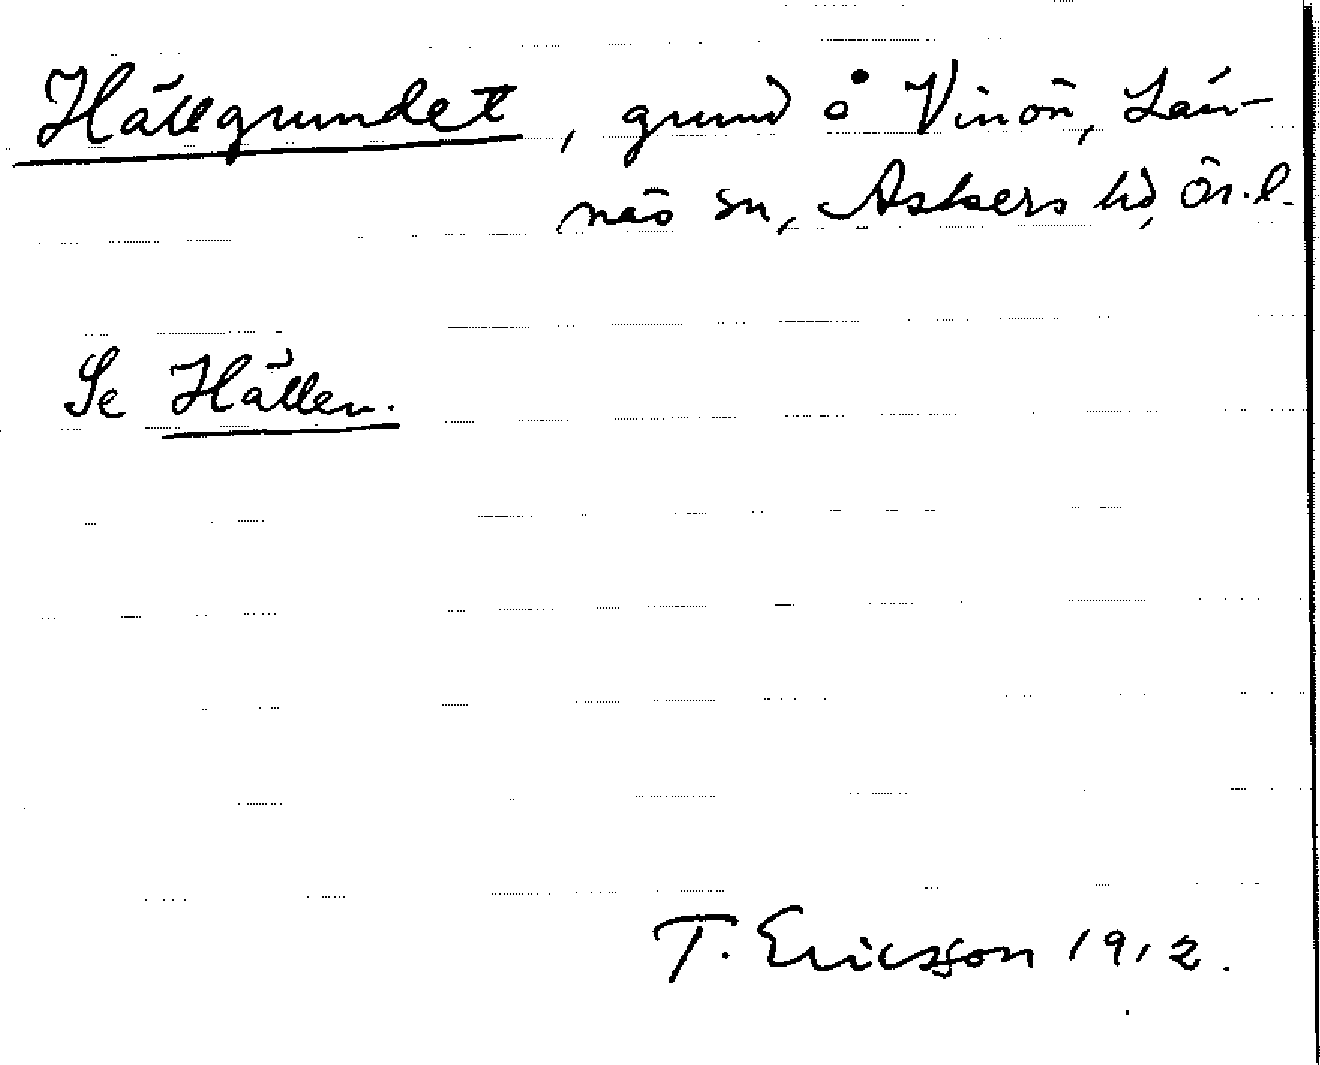 Hällgrundet, grund å Vinön, Län-
näs sn, Askers hd, Ör. l.
Se Hällen.
T. Ericsson 1912.